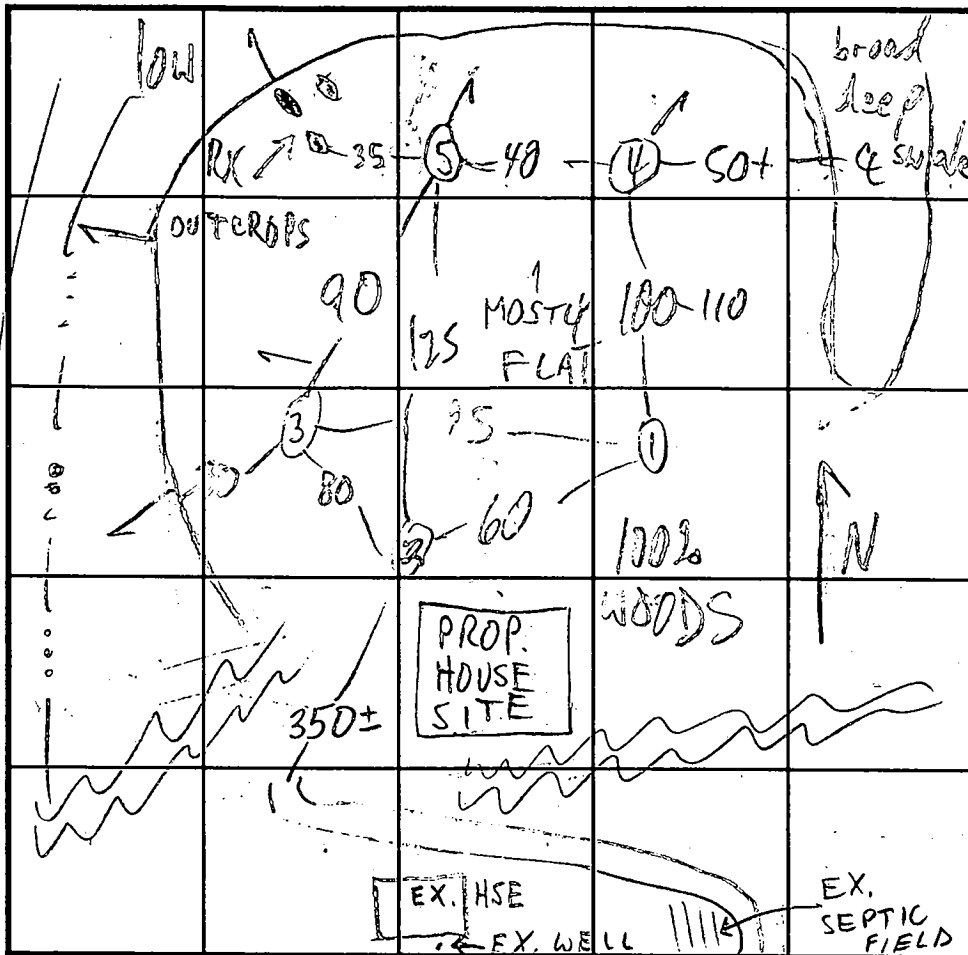 low
broad
deep
swale
RX
35
5
40
4
50+
OUTCROPS
90
125
MOSTLY
FLAT
100-110
3
80
1
2
60
100%
WOODS
N
PROP.
HOUSE
SITE
350±
EX. HSE
EX. WELL
EX.
SEPTIC
FIELD